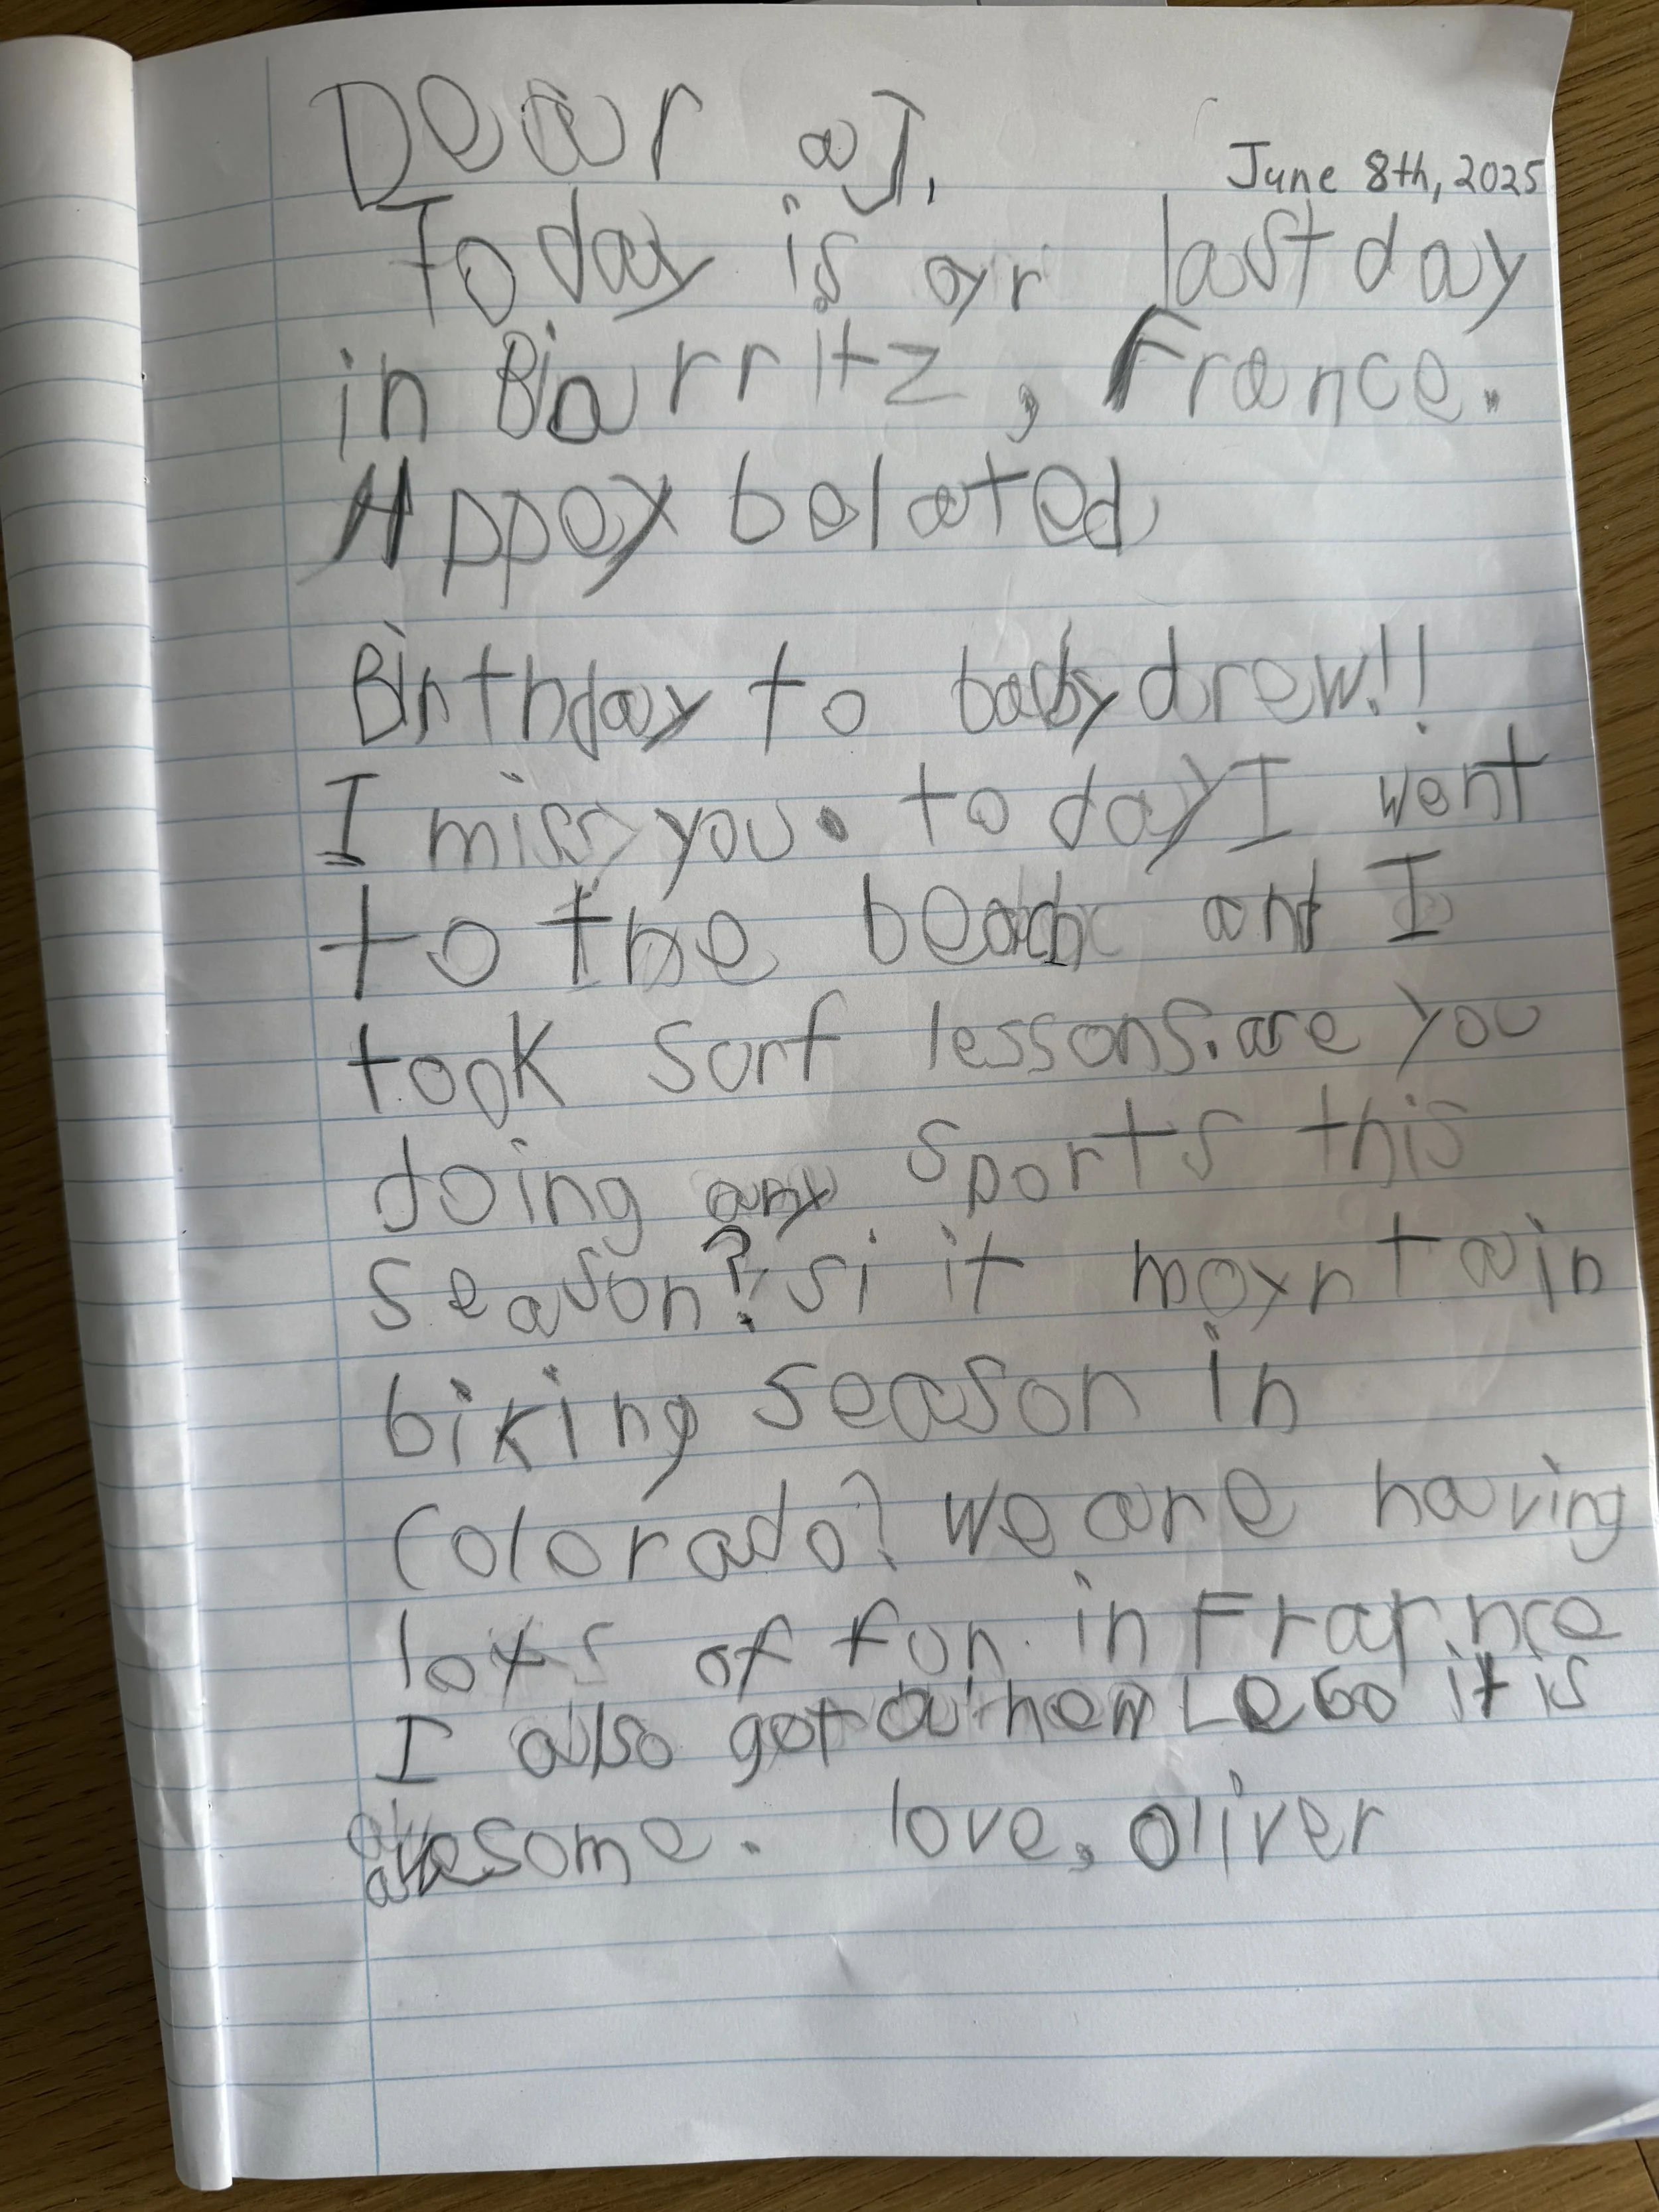 Dear aJ,
June 8th, 2025
Today is oyr last day
in Biarritz, France.
Hppey belated
Birthday to baby drew!!
I miss you. today I went
to the beach and I
took surf lessons. are you
doing any sports this
season? si it moyntain
biking season in
Colorado? we are having
lots of fun in France
I also got a new LeGo it is
awesome. love, oliver